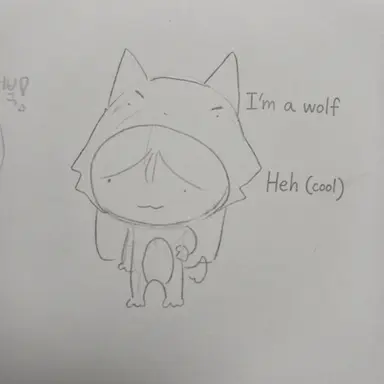 I'm a wolf
Heh (cool)